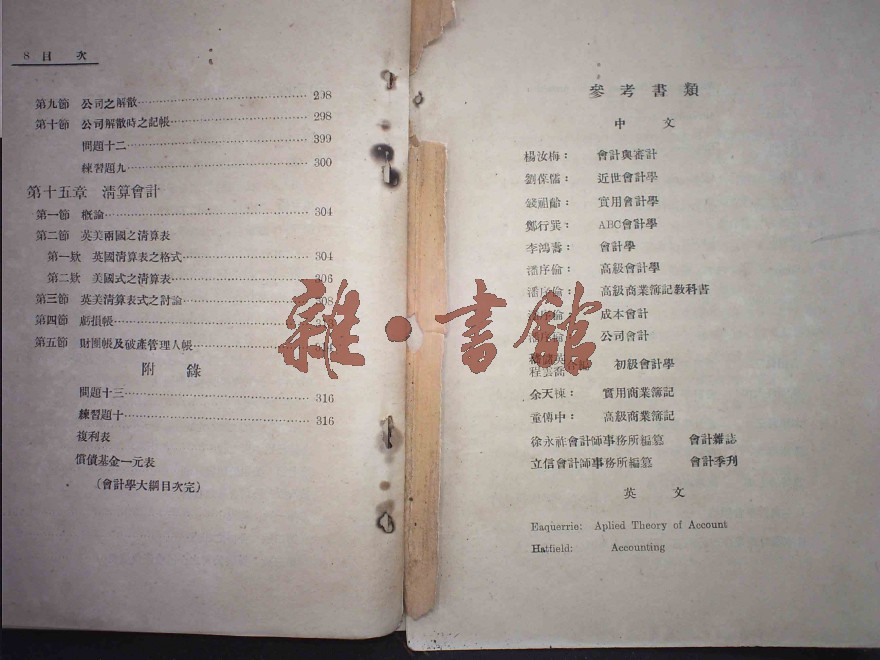 8 目 次
第九節 公司之解散 298
第十節 公司解散時之記帳 298
問題十二 399
練習題九 300
第十五章 淸算會計
第一節 槪論 304
第二節 英美兩國之淸算表
第一欵 英國淸算表之格式 304
第二欵 美國式之淸算表 306
第三節 英美淸算表式之討論
第四節 虧損帳
第五節 財團帳及破產管理人帳
附 錄
問題十三 316
練習題十 316
複利表
償債基金一元表
(會計學大綱目次完)
參考書類
中 文
楊汝梅: 會計與審計
劉葆儒: 近世會計學
錢祖齡: 實用會計學
鄭行巽: ABC會計學
李鴻壽: 會計學
潘序倫: 高級會計學
潘序倫: 高級商業簿記敎科書
成本會計
公司會計
初級會計學
余天棟: 實用商業簿記
童傳中: 高級商業簿記
徐永祚會計師事務所編纂 會計雜誌
立信會計師事務所編纂 會計季刋
英 文
Eaquerrie: Aplied Theory of Account
Hatfield: Accounting
雜·書館